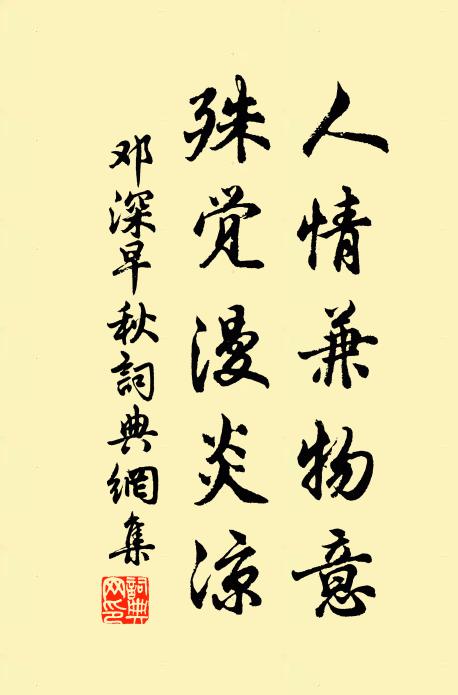 人情兼物意
殊觉漫炎凉
邓深早秋词典網集
詞典网印